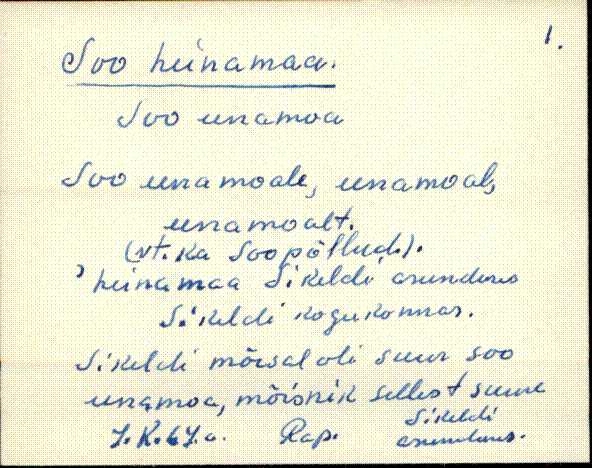 1.
Soo heinamaa.
Soo einamoa
Soo einamoale, einamoal,
einamoalt.
(vt. ka Soopõllud.).
heinamaa Sikeldi asunduses
Sikeldi kogukonnas.
Sikeldi mõisal oli suur soo
einamoa, mõisnik sellest suure
J.K. 67.a. Rap. Sikeldi
asunduses.